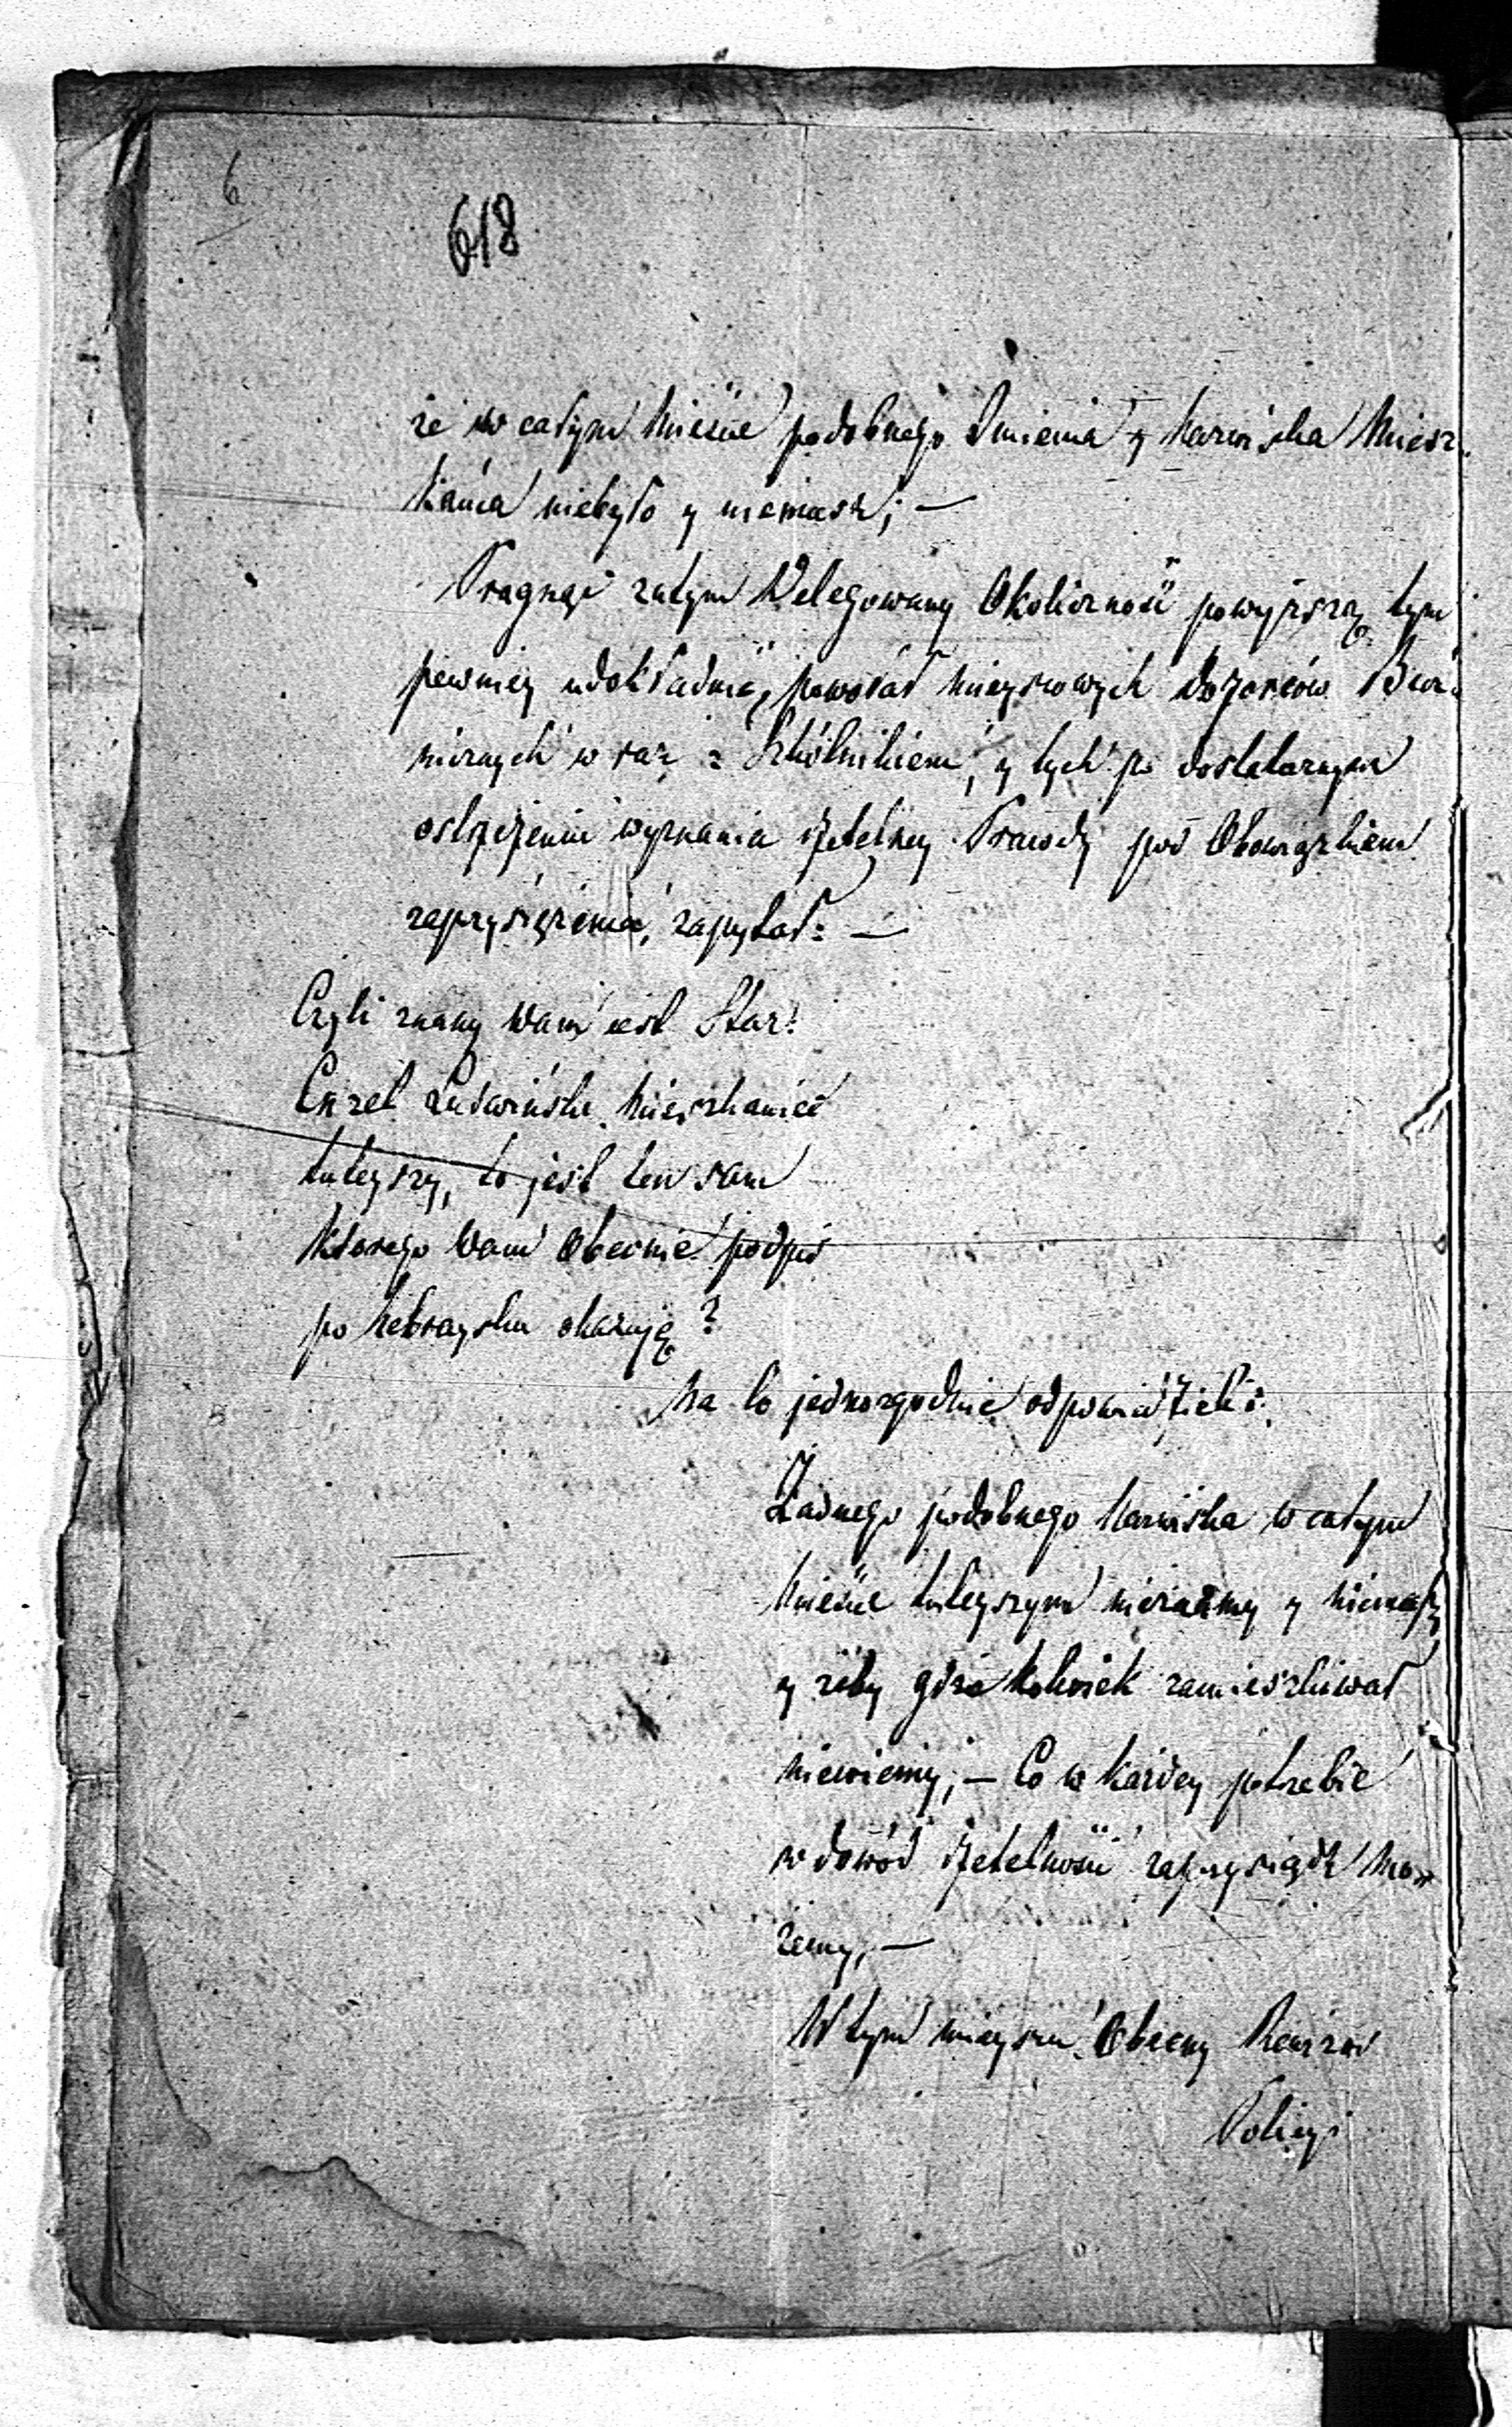 6
618
że w całym Mieście podobnego Imienia y Nazwiska Miesz-
kańca niebyło y niemasz; —
Pragnąć zatym Delegowany Okoliczność powyższą tym
pewniey udokładnić, powołał mieyscowych Dozorców Boż-
nicznych wraz z Szkólnikiem, y tych po dostatecznym
ostrzeżeniu wyznania rzetelney Prawdy pod Obowiązkiem
zaprzysiężenia, zapytał: —
Czyli znany Wam iest Star:
Enzel Ludwiński Mieszkaniec
tuteyszy, to jest ten sam
którego Wam Obecnie podpis
po hebraysku okazuję?
Na to jednozgodnie odpowiedzieli:
Żadnego podobnego Nazwiska w całym
Mieście tuteyszym nieznamy y niemasz
y żeby gdzie kolwiek zamieszkiwał
niewiemy; — Co w każdey potrzebie
w dowód rzetelności zaprzysiądz mo-
żemy, —
W tym mieyscu Obecny Rewizor
Policyi